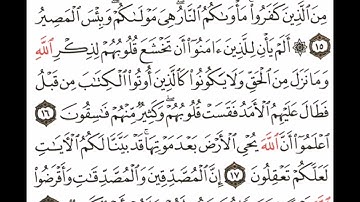 مِنَ ٱلَّذِينَ كَفَرُواْ مَأْوَىٰكُمُ ٱلنَّارُ هِىَ مَوْلَىٰكُمْ وَبِئْسَ ٱلْمَصِيرُ
١٥ ۞ أَلَمْ يَأْنِ لِلَّذِينَ ءَامَنُوٓاْ أَن تَخْشَعَ قُلُوبُهُمْ لِذِكْرِ ٱللَّهِ
وَمَا نَزَلَ مِنَ ٱلْحَقِّ وَلَا يَكُونُواْ كَٱلَّذِينَ أُوتُواْ ٱلْكِتَٰبَ مِن قَبْلُ
فَطَالَ عَلَيْهِمُ ٱلْأَمَدُ فَقَسَتْ قُلُوبُهُمْ وَكَثِيرٌ مِّنْهُمْ فَٰسِقُونَ ١٦
ٱعْلَمُوٓاْ أَنَّ ٱللَّهَ يُحْىِ ٱلْأَرْضَ بَعْدَ مَوْتِهَا قَدْ بَيَّنَّا لَكُمُ ٱلْءَايَٰتِ
لَعَلَّكُمْ تَعْقِلُونَ ١٧ إِنَّ ٱلْمُصَّدِّقِينَ وَٱلْمُصَّدِّقَٰتِ وَأَقْرَضُواْ